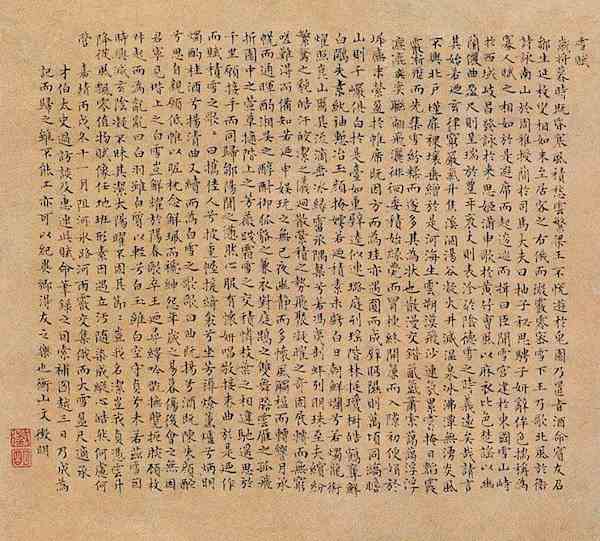 雪賦
歲將暮時既昏寒風積愁雲繁梁王不悅遊於兔園乃置旨酒命賓友召
鄒生延枚叟相如末至居客之右俄而微霰零密雪下王乃歌北風於衛
詩詠南山於周雅授簡於司馬大夫曰抽子秘思騁子妍辭侔色揣稱為
寡人賦之相如於是避席而起逡巡而揖曰臣聞雪宮建於東國雪山峙
於西域岐昌發詠於來思姬滿申歌於黃竹曹風以麻衣比色楚謠以幽
蘭儷曲盈尺則呈瑞於豐年袤丈則表沴於陰德雪之時義遠矣哉請言
其始若迺玄律窮嚴氣升焦溪涸湯谷凝火井滅溫泉冰沸潭無湧炎風
不興北戶墐扉裸壤垂繒於是河海生雲朔漠飛沙連氛累霭掩日韜霞
霰淅瀝而先集雪紛糅而遂多其為狀也散漫交錯氛氳蕭索藹藹浮浮
瀌瀌奕奕聯翩飛灑徘徊委積始緣甍而冒棟終開簾而入隙初便娟於
墀廡末縈盈於帷席既因方而為珪亦遇圓而成璧眄隰則萬頃同縞瞻
山則千巖俱白於是臺如重璧逵似連璐庭列瑤階林挺瓊樹皓鶴奪鮮
白鷴失素紈袖慙冶玉顏掩嫮若迺積素未虧白日朝鮮爛兮若燭龍銜
燿照崑山爾其流滴垂冰緣霤承隅粲兮若馮夷剖蚌列明珠至夫繽紛
繁騖之貌皓汗皦潔之儀迴散縈積之勢飛聚凝曜之奇固展轉而無窮
嗟難得而備知若迺申娛玩之無已夜幽靜而多懷風觸楹而轉響月承
幌而通暉酌湘吳之醇酎御狐狢之兼衣對庭鵾之雙舞瞻雲鴈之孤飛
折園中之萱草摘階上之芳薇踐霜雪之交積憐枝葉之相違馳遙思於
千里願接手而同歸鄒陽聞之懣然心服有懷妍唱敬接末曲於是迺作
而賦積雪之歌曰攜佳人兮披重幄援綺衾兮坐芳褥燎薰爐兮炳明
燭酌桂酒兮揚清曲又續而為白雪之歌歌曰曲既揚兮酒既陳朱顏酡
兮思自親願低帷以昵枕念解珮而褫紳怨年歲之易暮傷後會之無因
君寧見階上之白雪豈鮮耀於陽春歌卒王迺尋繹吟翫撫覽扼腕顧枚
叔起而為亂亂曰白羽雖白質以輕兮白玉雖白空守貞兮未若茲雪因
時興滅玄陰凝不昧其潔太陽曜不固其節節豈我名潔豈我貞憑雲升
降從風飄零值物賦像任地班形素因遇立汙隨染成縱心皓然何慮何
營 嘉靖丙戌冬十一月阻河冰路河雨雪交集俄而大雪盈尺適承
才伯太史過訪談及惠連此賦命筆錄之因索補圖越三日乃成為
記而歸之雖不能工亦可以紀與得友之樂也衡山文徵明